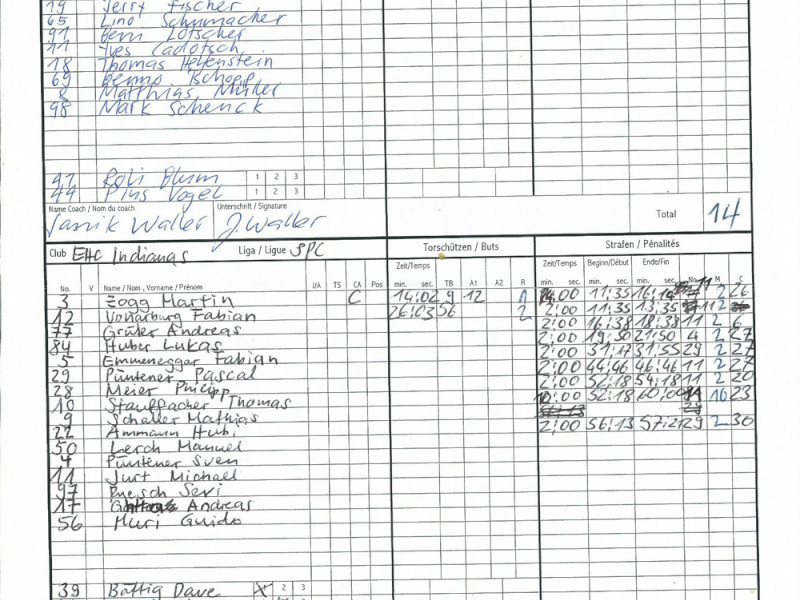 19 Jerry Fischer
65 Lino Schumacher
91 Beni Lötscher
11 Yves Cadotsch
18 Thomas Helfenstein
69 Benno Tschopp
8 Matthias Müller
98 Mark Schenck
41 Roli Blum 1 2 3
44 Pius Vogel 1 2 3
Name Coach / Nom du coach Unterschrift / Signature Total 14
Janik Waller J. Waller
Club EHC Indianas Liga / Ligue SPC Torschützen / Buts Strafen / Pénalités
Zeit/Temps Zeit/Temps Beginn/Début Ende/Fin
No. V Name / Nom, Vorname / Prénom I/A TS CA Pos min. sec. TB A1 A2 R min. sec. min. sec. min. sec. No. M C
3 Zogg Martin C 14:02 9 12 1 11:35 11 2 26
12 Vonarburg Fabian 26:03 56 2 2:00 11:35 13:35 11 2
77 Grüter Andreas 2:00 16:38 18:38 11 2 6
84 Huber Lukas 2:00 19:50 21:50 4 2 27
5 Emmenegger Fabian 2:00 31:17 31:55 29 2 27
29 Püntener Pascal 2:00 44:46 46:46 11 2 22
28 Meier Philipp 2:00 52:18 54:18 11 2 20
10 Stauffacher Thomas 10:00 52:18 60:00 10 23
9 Schaller Mathias
22 Ammann Hubi 2:00 56:13 57:21 29 2 30
50 Lerch Manuel
4 Püntener Sven
11 Jurt Michael
97 Ruesch Sevi
17 Andreas
56 Muri Guido
39 Bättig Dave 2 3